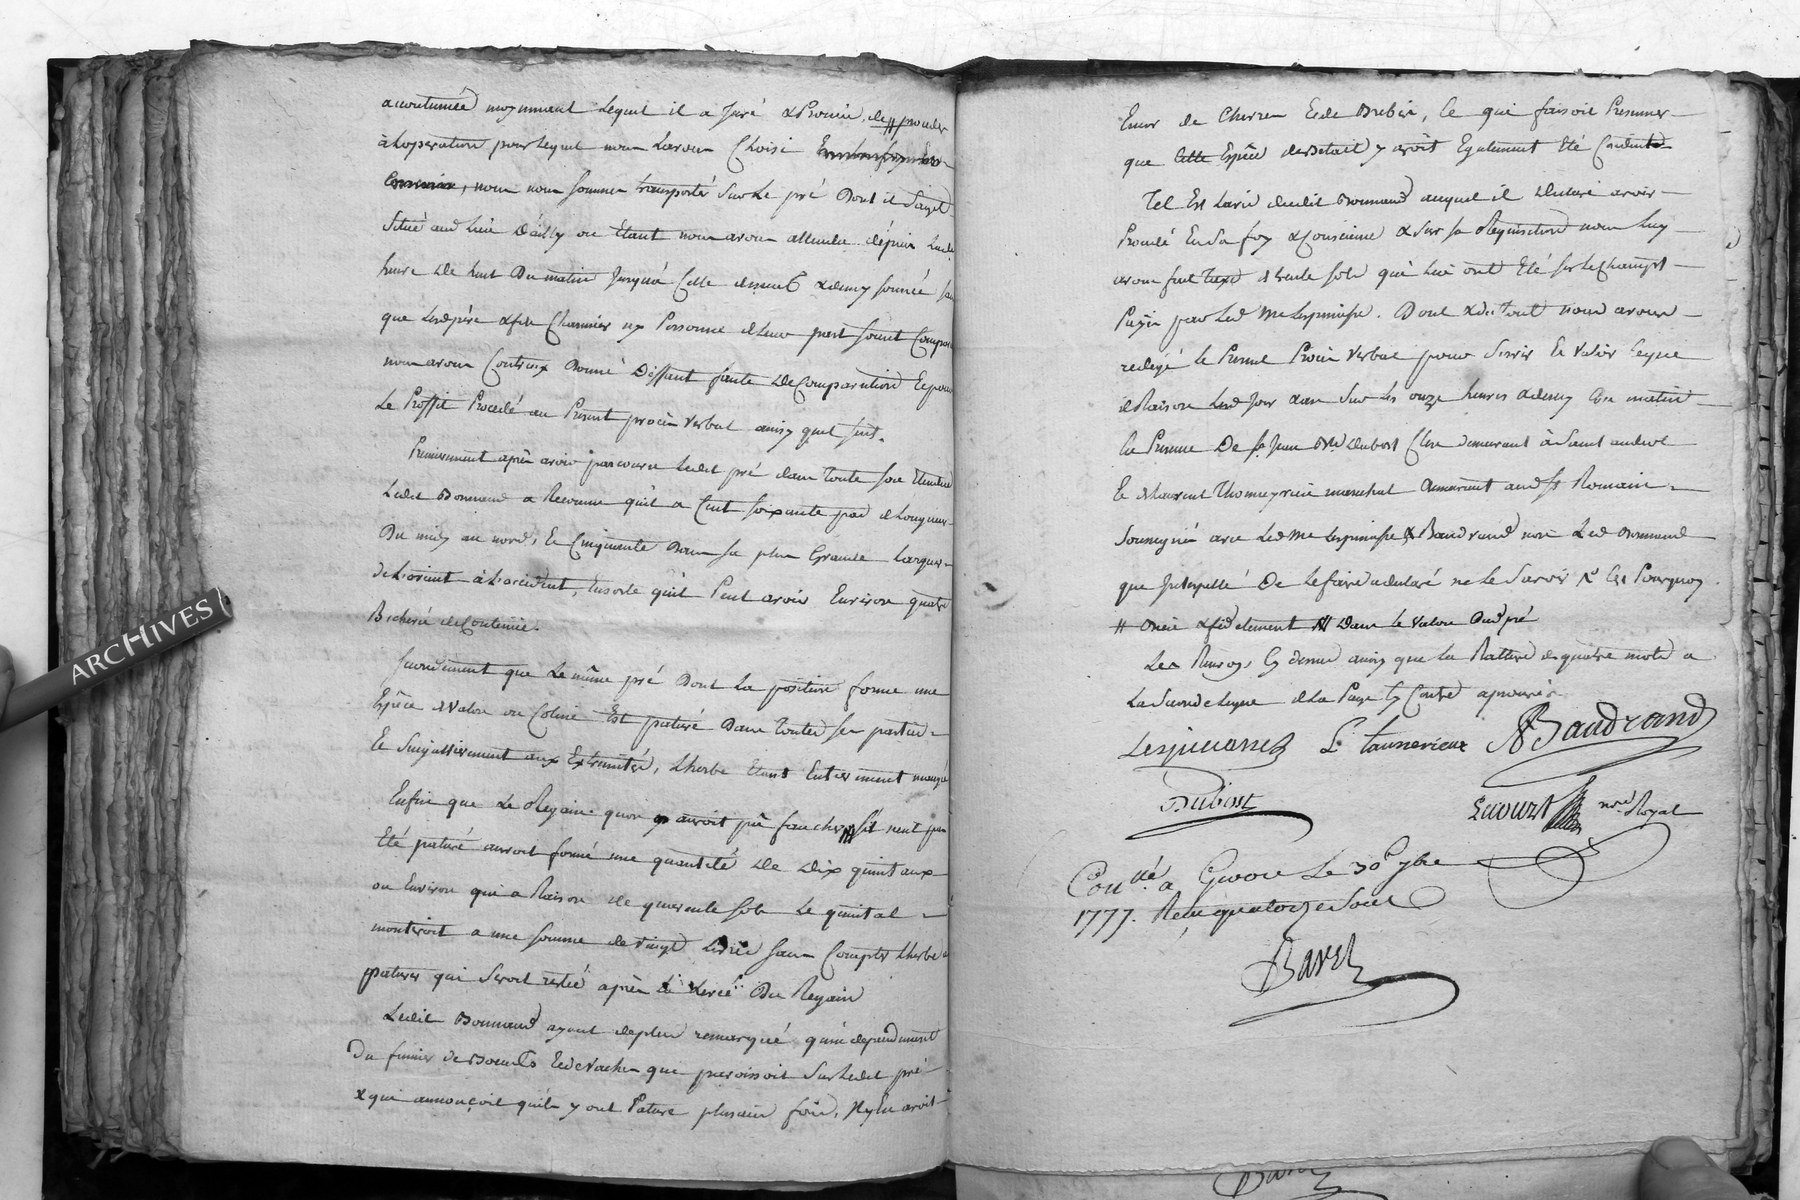 accoutumée moyennant lequel il a Juré & Promis de // proceder
à Loperation pour lequel nous Lavons Choisi
nous nous sommes transportés Sur Le pré Dont il Sagit
Situé aud Lieu Dailly ou Etant nous avons attendu depuis Lad
heure De huit Du matin Jusqua Celle & demy sonnée sans
que Lesd père & fils Charnier ny Personne de Leur part soient Comparus
nous avons Contreux Donné Deffaut faute De Comparution Et pour
Le Proffit Procedé au Present procès Verbal ainsy quil suit.
Premierement après avoir parcouru Ledit pré dans Toute son Etendue
Ledit Bonnand a Reconnu quil a Cent soixante pas de Longueur
Du midy au nord, Et Cinquante Dans sa plus Grande Largeur
de Lorient à Loccident, Ensorte quil Peut avoir Environ quatre
Bicherée de Contenue.
Secondement que Le même pré Dont La position forme une
Espèce de Valon ou Coline Est paturé Dans Toutes ses parties
Et Singulierement aux Extremités, Lherbe Etant Entierement mangée
Enfin que Le Regain quon auroit pû faucher sil neut pas
Eté paturé auroit formé une quantité De Dix quintaux
ou Environ qui a Raison de quarente sols Le quintal
monteroit a une somme de Vingt Livres sans Compter Lherbe a
paturer qui Seroit restée après La Levée Du Regain
Ledit Bonnand ayant de plus remarqué quindependament
Du fumier de Boeufs Et de Vaches que paroissoit Sur Ledit pré
& qui annonçoit quils y ont Paturé plusieurs fois, Il y En avoit
Encor de Chevres Et de Brebis, Ce qui faisoit Presumer
que Cette Espèce de Betail y avoit Egalement Eté Conduite
Tel Est Lavis dudit Bonnand auquel il a Declaré avoir
Procedé En Sa foy & Conscience & Sur sa Requisition nous Luy
avons fait Taxe de trente sols qui Lui ont Eté sur Le Champs
Payés par Led Me Lespinasse. Dont & du Tout nous avons
redigé Le Present Procès Verbal pour Servir Et Valoir Ceque
de Raison Lesd Jour & an Sur Les onze heures & demy Du matin
En Presence De Sr Jean Bte Dubost Clerc demeurant à Saint andeol
Et de Laurent Thomeyrieux marechal demeurant aud St Romain
Soussignés avec Led Me Lespinasse & Baudrand non Led Bonnand
que Interpellé De Le faire a declaré ne Le Savoir Et Pourquoy
// Bien & fidelement Dans Le Valon Dud pré
Les Renvoys Cy dessus ainsy que La Rature de quatre mots a
La Seconde Ligne de La Page Cy Contre aprouvés
Lespinasse L. Baudrand
Dubost Nre Royal
Conllé a Givors Le 30e 7bre
1777. Reçu quatorze sols
Barel
ARCHIVES